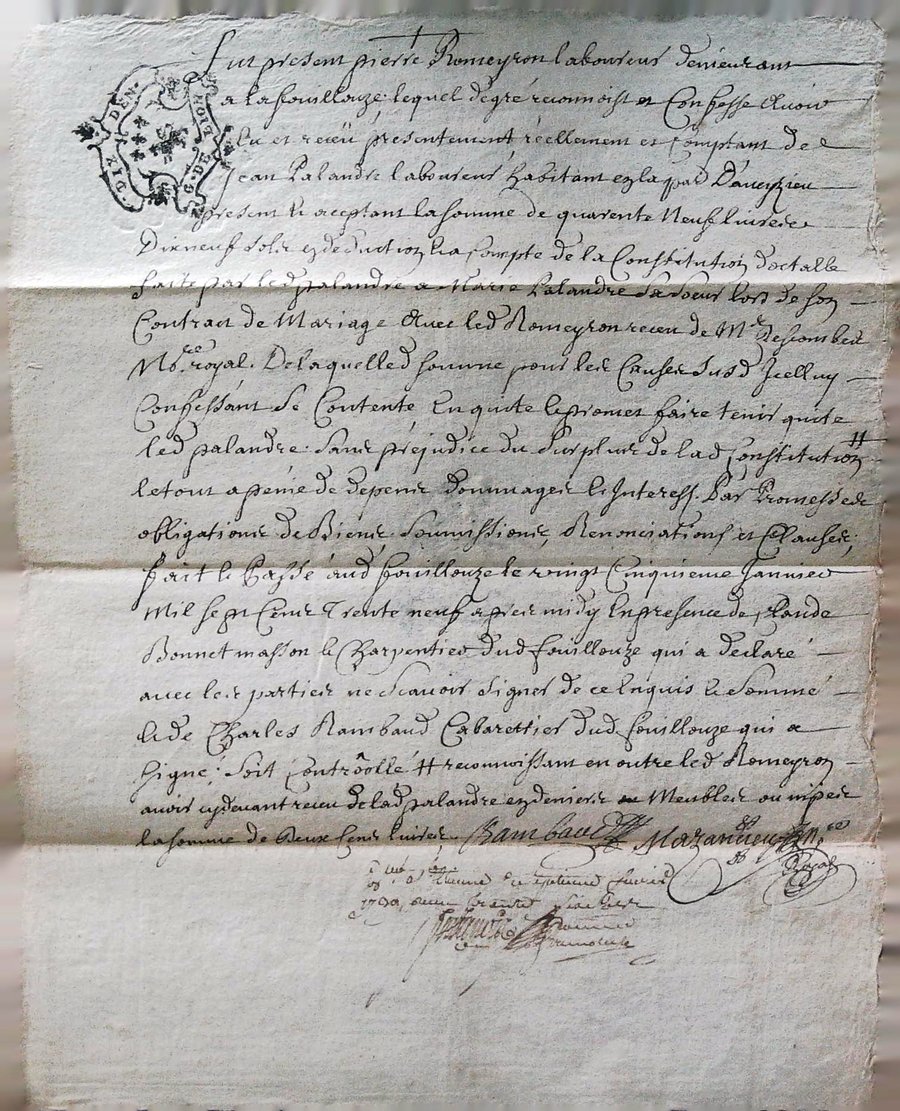 DIX DEN.
G. DE LION
fut present pierre Romeyron laboureur demeurant
a lafouillouze lequel degré reconnoist et Confesse Avoir
Eu et reçeu presentement réellement et Comptant de
Jean Palandre laboureur habitant enla par D'aveyzieu
present et aceptant lasomme de quarente Neuf livres
Dixneuf sols endeduction ea Compte de la Constitution dotalle
faite par led palandre a Marie Palandre sasoeur lors de son
Contract de Mariage Avec led Romeyron receu de Me Descombes
Nore royal. Delaquelled somme pour les Causes susd Jcelluy
Confessant se Contente En quite et promet faire tenir quite
led palandre sans préjudice du surplus de lad Constitution #
letout apeine de depens dommages et Interess. Par Promesses
obligations de Biens, soumissions, Renonciations et Clauses,
fait et Passé aud fouillouze le vingt Cinquieme Janvier
Mil sept Cens Trente neuf apres midy En presence de Claude
Bonnet masson et Charpentier dud fouillouze qui a declaré
avec les parties ne scavoir signer de ce Enquis et sommé
et de Charles Rambaud Cabarettier dud fouillouze qui a
signé; soit Controollé # reconnoissant en outre led Romeyron
avoir cydevant receu dud palandre endeniers Meubles ou nipes
lasomme de Deux Cens livres. Rambaud Mazandieu Nre
Royal